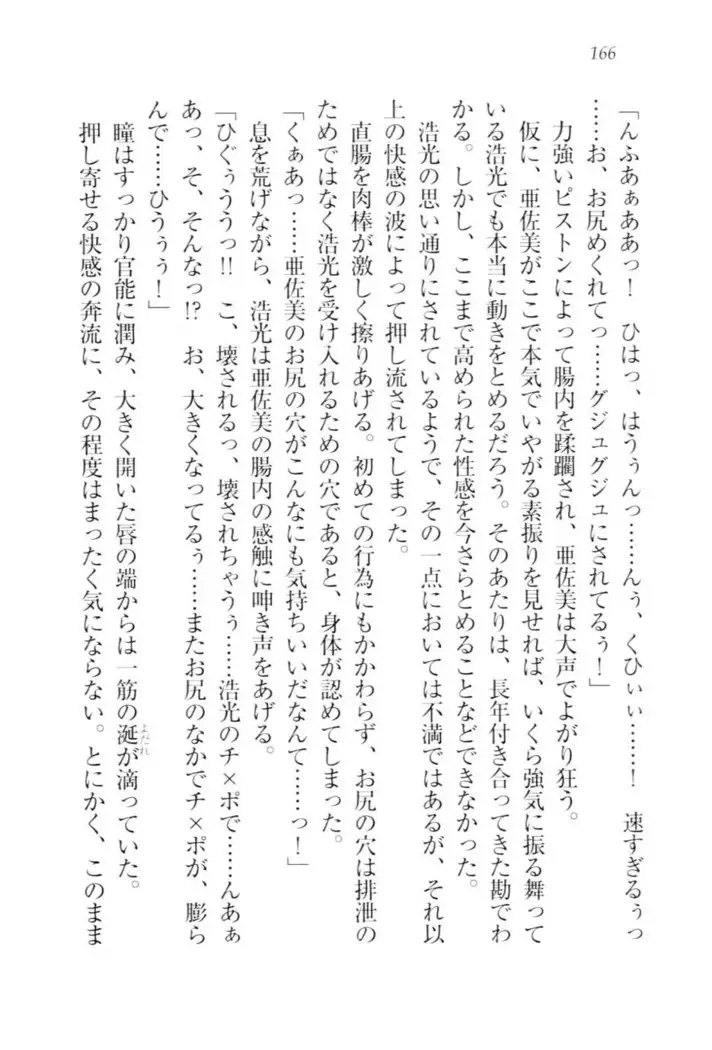 166
「んふあぁああっ！　ひはっ、はうぅんっ……んぅ、くひぃぃ……！　速すぎるぅっ
……お、お尻めくれてっ……グジュグジュにされてるぅ！」
力強いピストンによって腸内を蹂躙され、亜佐美は大声でよがり狂う。
仮に、亜佐美がここで本気でいやがる素振りを見せれば、いくら強気に振る舞って
いる浩光でも本当に動きをとめるだろう。そのあたりは、長年付き合ってきた勘でわ
かる。しかし、ここまで高められた性感を今さらとめることなどできなかった。
浩光の思い通りにされているようで、その一点においては不満ではあるが、それ以
上の快感の波によって押し流されてしまった。
直腸を肉棒が激しく擦りあげる。初めての行為にもかかわらず、お尻の穴は排泄の
ためではなく浩光を受け入れるための穴であると、身体が認めてしまった。
「くぁあっ……亜佐美のお尻の穴がこんなにも気持ちいいだなんて……っ！」
息を荒げながら、浩光は亜佐美の腸内の感触に呻き声をあげる。
「ひぐぅううっ!!　こ、壊されるっ、壊されちゃうぅ……浩光のチ×ポで……んあぁ
あっ、そ、そんなっ!?　お、大きくなってるぅ……またお尻のなかでチ×ポが、膨ら
んで……ひうぅぅ！」
瞳はすっかり官能に潤み、大きく開いた唇の端からは一筋の涎が滴っていた。
よだれ
押し寄せる快感の奔流に、その程度はまったく気にならない。とにかく、このまま